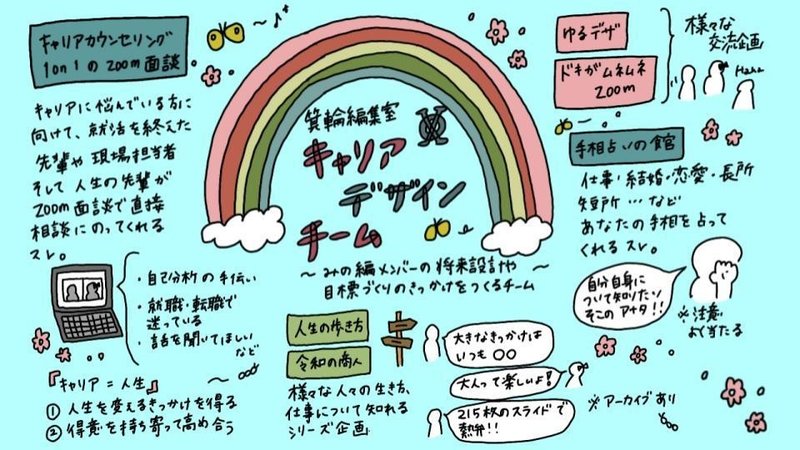 キャリアカウンセリング
1on1のzoom面談
キャリアに悩んでいる方に
向けて、就活を終えた
先輩や現場担当者
そして人生の先輩が
zoom面談で直接
相談にのってくれる
スレ。
・自己分析の手伝い
・就職・転職で
迷っている
・話を聞いてほしい
など
『キャリア=人生』
① 人生を変えるきっかけを得る
② 得意を持ち寄って高め合う
箕輪編集室
キャリア
デザイン
チーム
〜みの編メンバーの将来設計や
目標づくりのきっかけをつくるチーム
人生の歩き方
令和の商人
様々な人々の生き方、
仕事について知れる
シリーズ企画
大きなきっかけは
いつも○○
大人って楽しいよ!
215枚のスライドで
熱弁!!
※アーカイブあり
ゆるデザ
ドキがムネムネ
ZOOM
様々な
交流企画
Haha
手相占いの館
仕事・結婚・恋愛・長所
短所…など
あなたの手相を占って
くれるスレ。
自分自身に
ついて知りたい
そこのアナタ!!
※注意
よく当たる